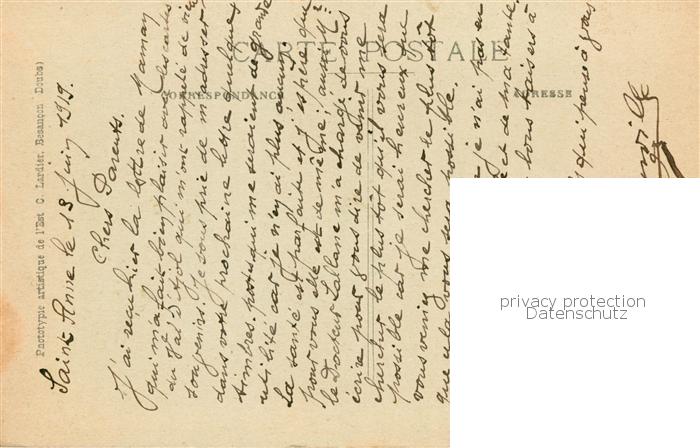 CARTE POSTALE
CORRESPONDANCE
ADRESSE
Phototypie artistique de l'Est C. Lardier, Besançon (Doubs)
Saint-Anne le 13 juin 1919.
Chers Parents.
J'ai reçu hier la lettre de maman
qui m'a fait bien plaisir avec les cartes
du qui m'ont rappelé de vieux
souvenirs. Je vous prie de m'adresser
dans votre prochaine lettre quelques
timbres poste qui me seraient de grande
utilité car je n'en ai plus aucun.
La santé est parfaite et j'espère que
pour vous elle est de même.
le docteur m'a chargé de vous
écrire pour vous dire de venir me
chercher le plus tôt qu'il vous sera
possible car je serai heureux que
vous veniez me chercher le plus tôt
que cela vous sera possible.
je n'ai pas en
et de ma santé
bons baisers à
qui pense à vous
privacy protection
Datenschutz